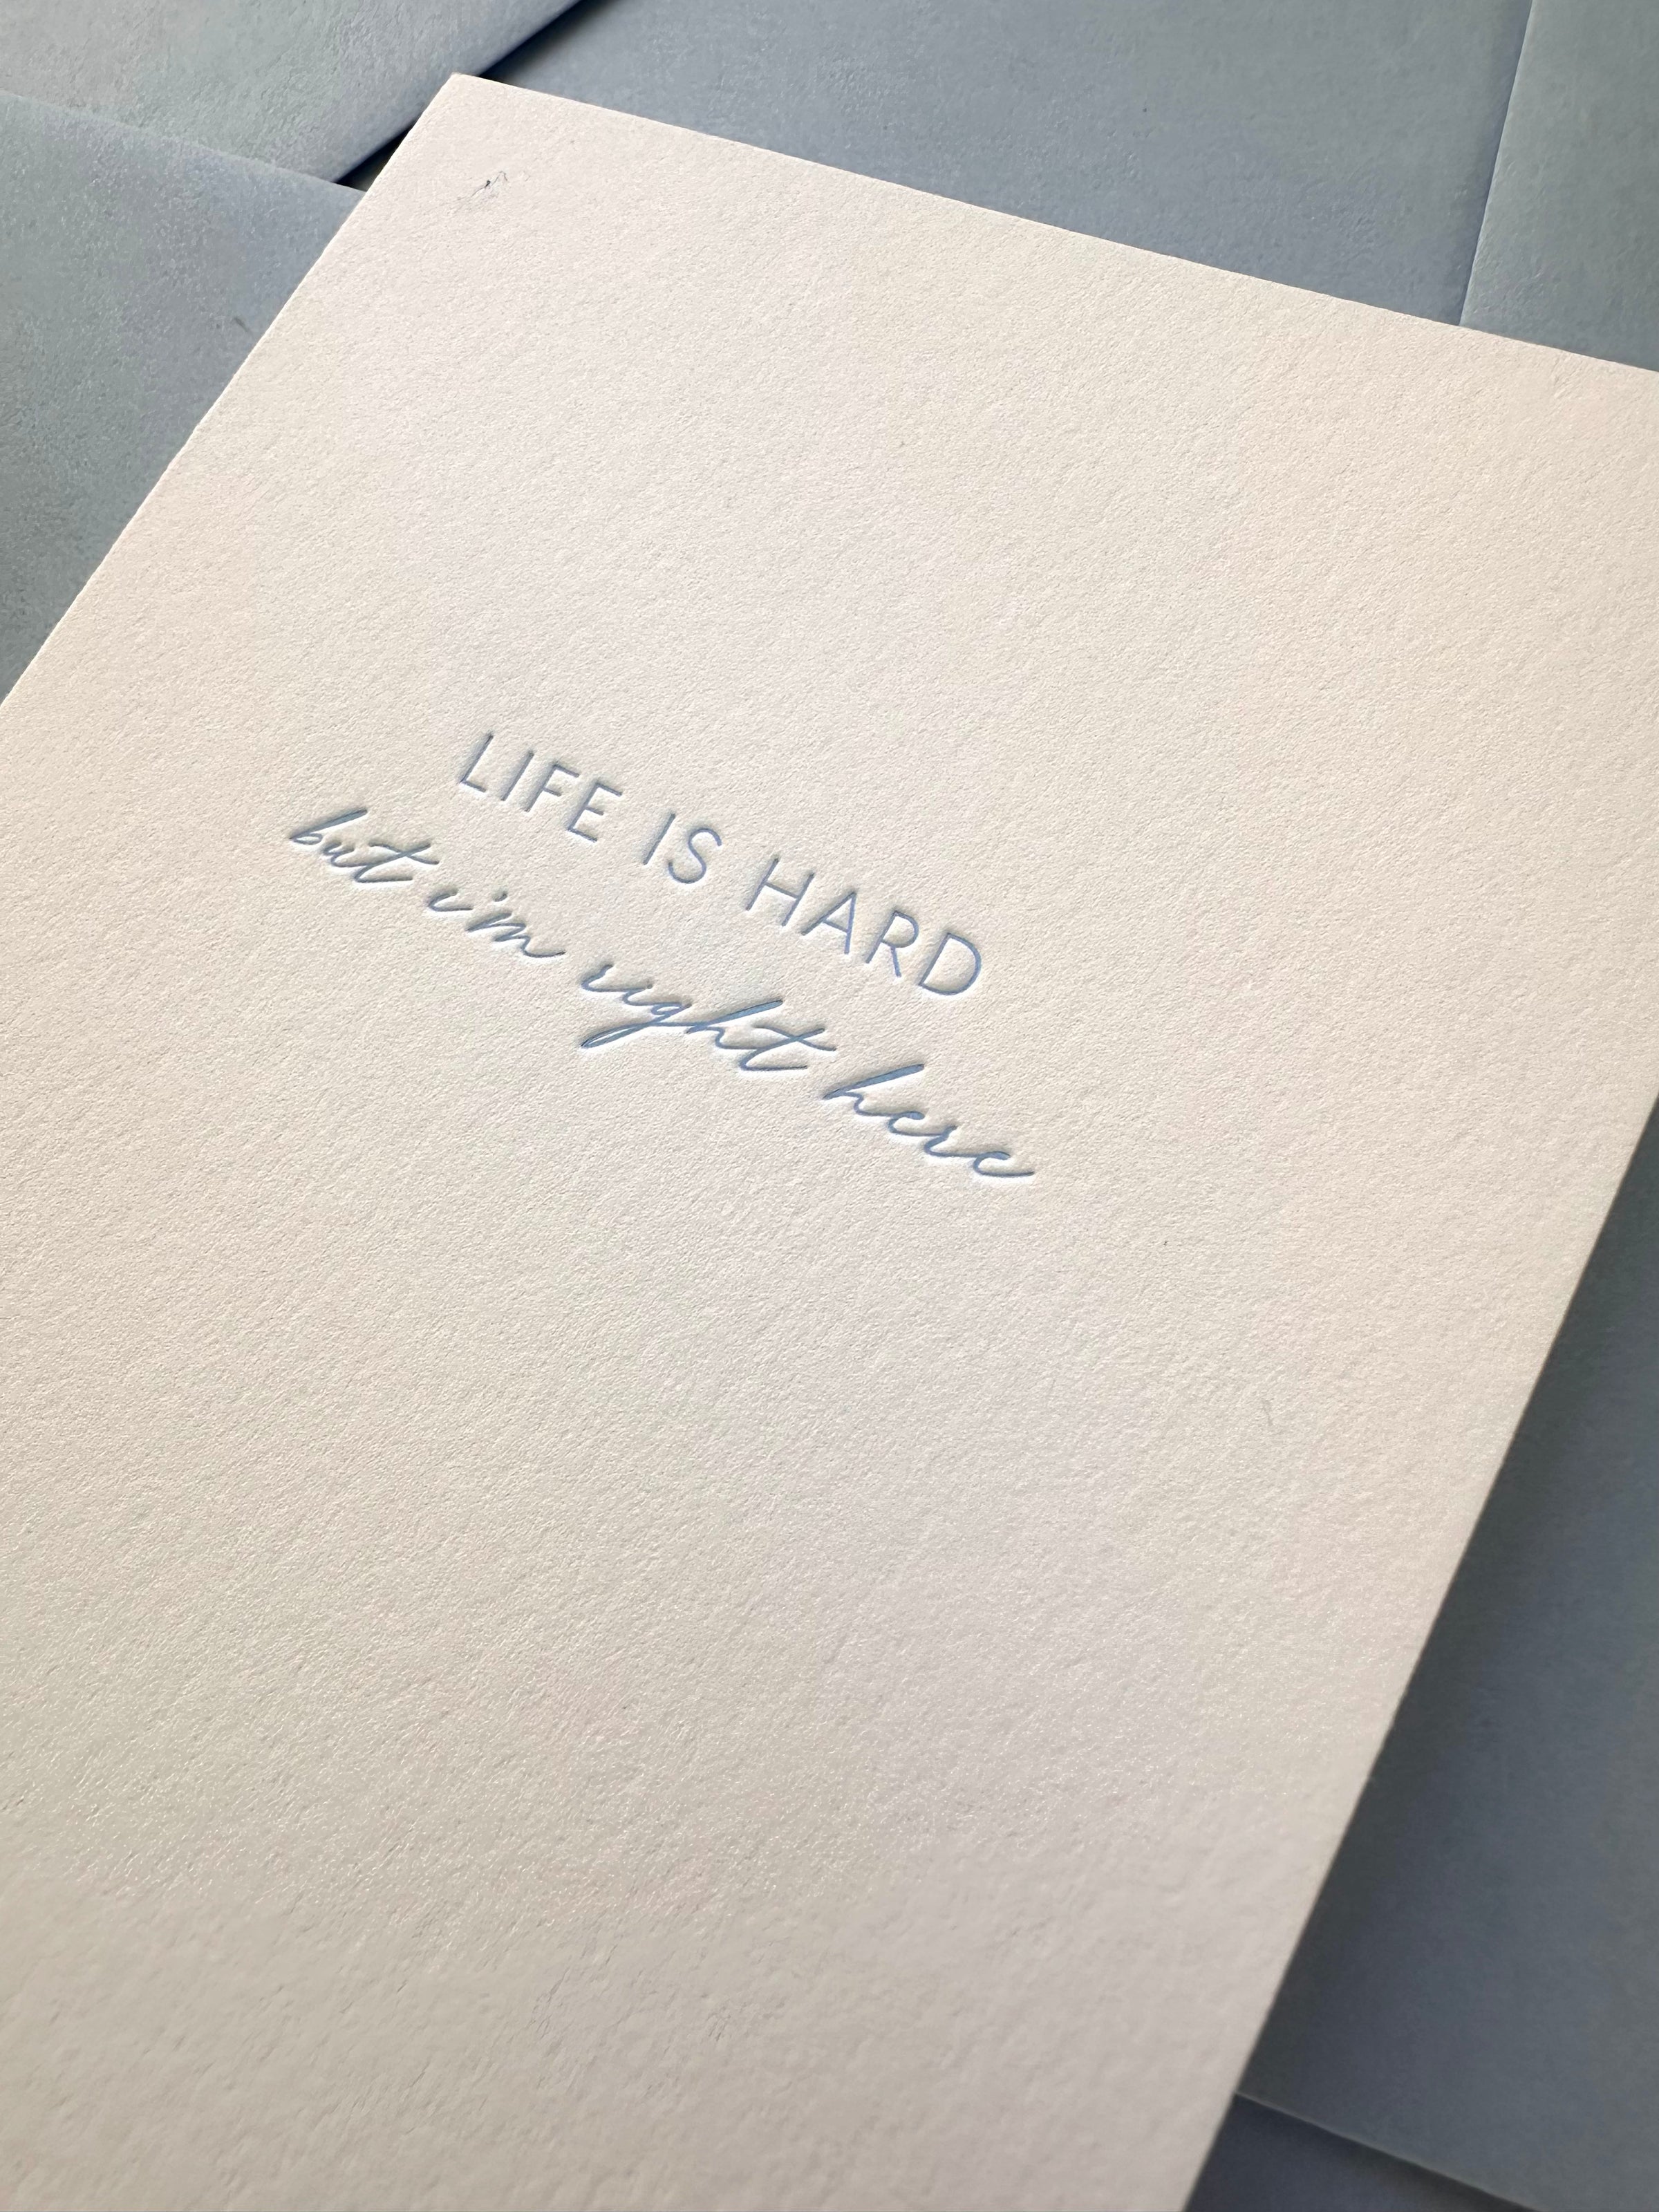 LIFE IS HARD
but i'm right here